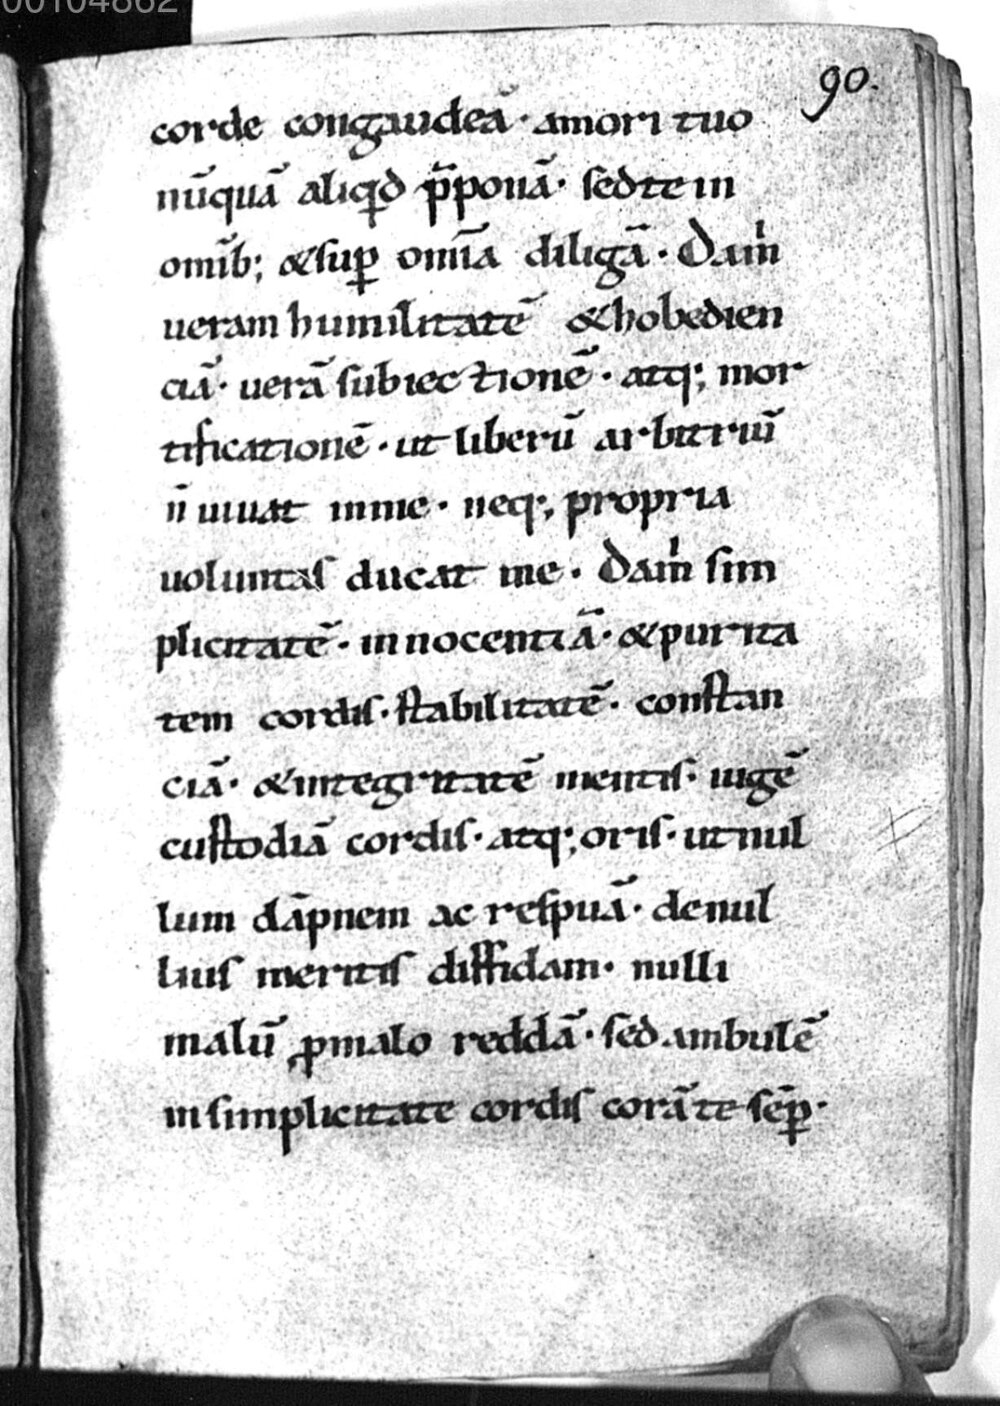 00104862
90.
corde congaudeā · amori tuo
nūquā aliqd p̄ponā · sed te in
omīb; & sup̱ omīa diligā · Da m̍
ueram humilitatē & hobedien
ciā · uerā subiectionē · atq; mor
tificationē · ut liberū arbitriū
n̄ uiuat in me · neq; propria
uoluntas ducat me · Da m̍ sim
plicitatē · innocentiā · & purita
tem cordis · stabilitatē · constan
ciā · & integritatē mentis · iugē
custodiā cordis · atq; oris · ut nul
lum dāpnem ac respuā · de nul
lius meritis diffidam · nulli
malū ꝓ malo reddā · sed ambulē
in simplicitate cordis corā te sēp̱ ·